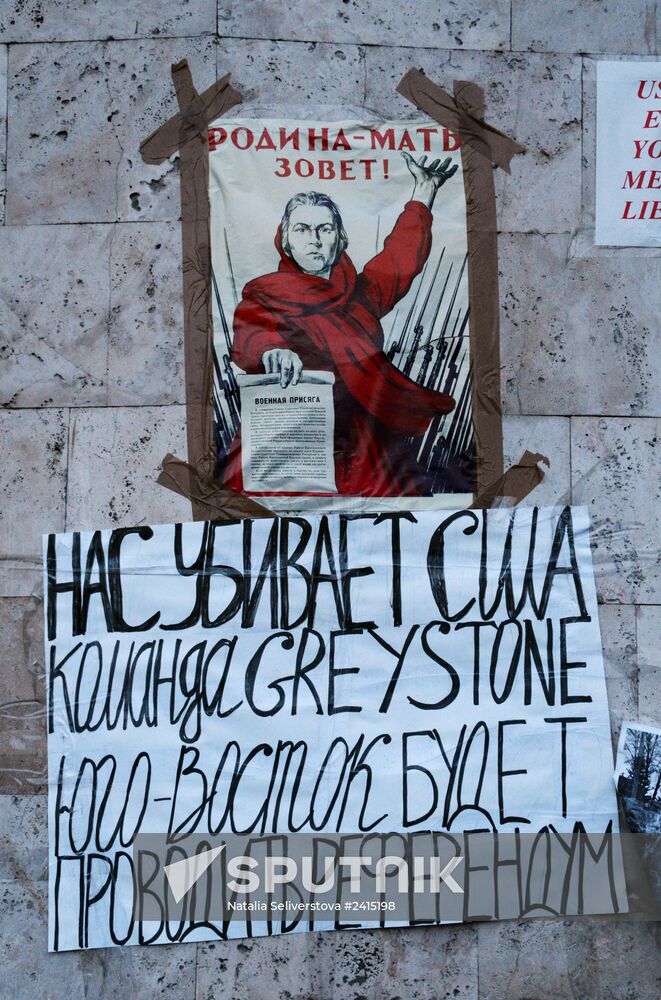 РОДИНА-МАТЬ
ЗОВЕТ!
ВОЕННАЯ ПРИСЯГА
US
E
YO
ME
LIE
НАС УБИВАЕТ США
КОМАНДА GREYSTONE
ЮГО-ВОСТОК БУДЕТ
ПРОВОДИТЬ РЕФЕРЕНДУМ
SPUTNIK
Natalia Seliverstova #2415198